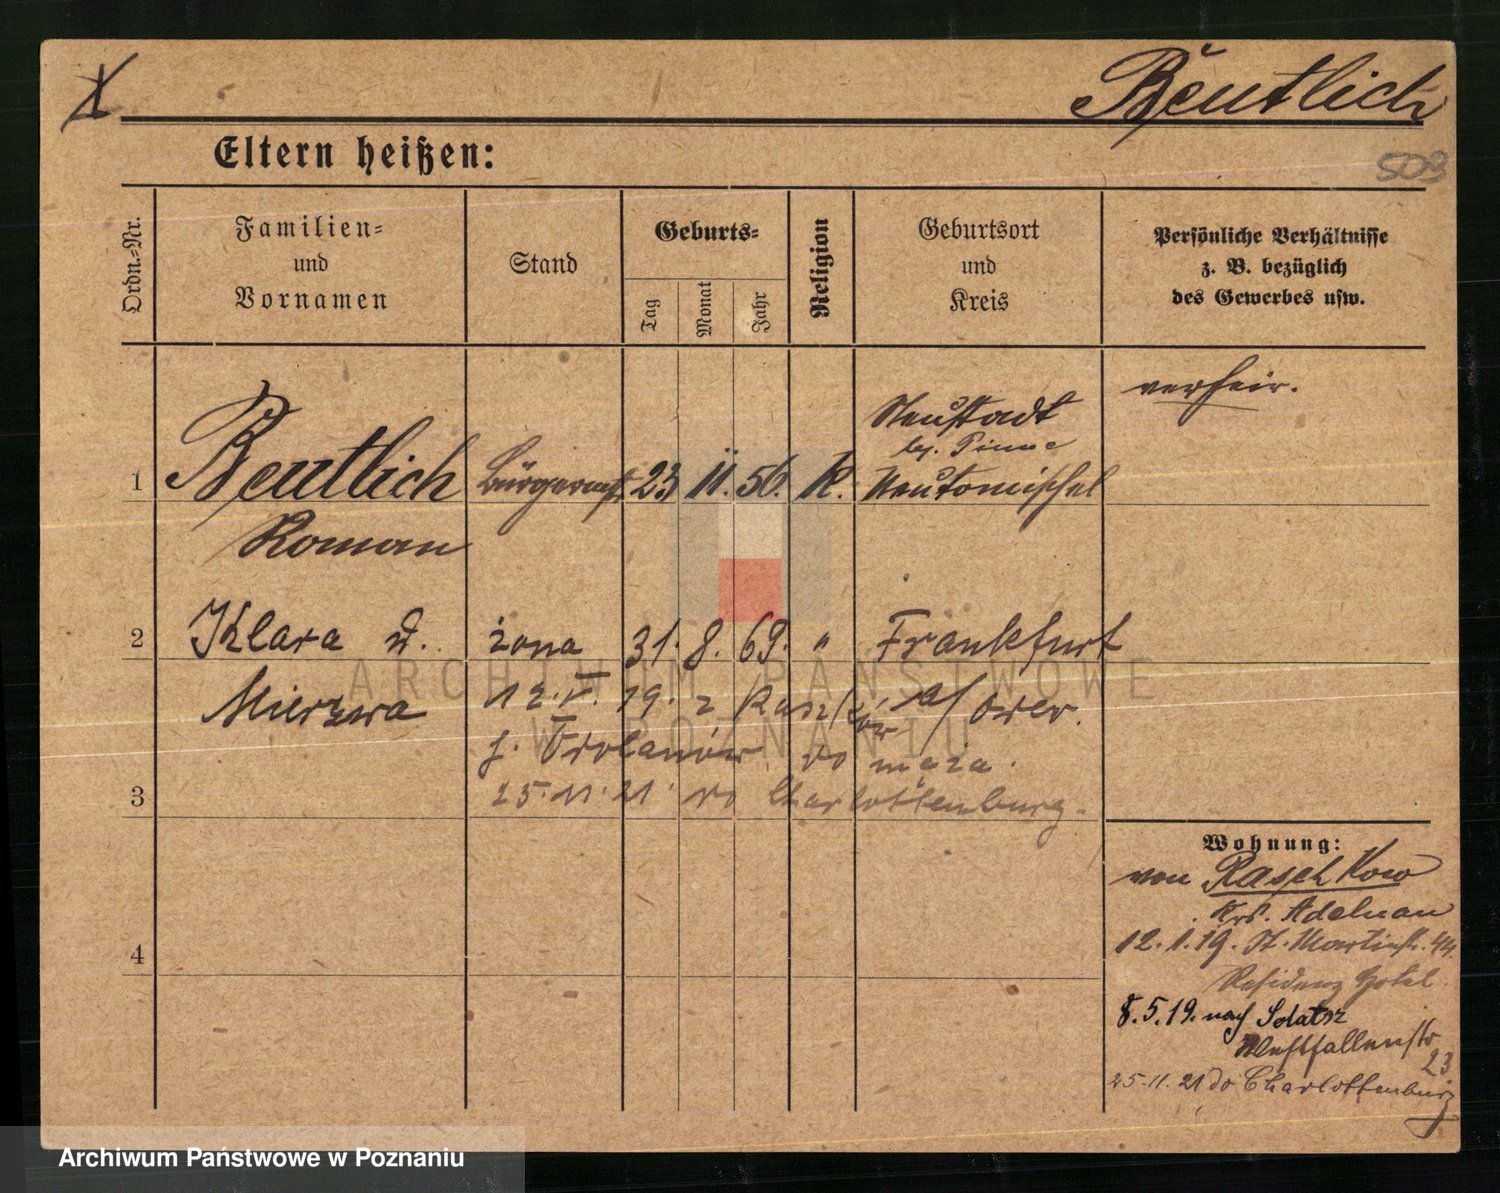 Beutlich
Eltern heißen:
503
Ordn.-Nr.
Familien-
und
Vornamen
Stand
Geburts-
Tag
Monat
Jahr
Religion
Geburtsort
und
Kreis
Persönliche Verhältnisse
z. B. bezüglich
des Gewerbes usw.
verheir.
Neustadt
bei. Pinne
1 Beutlich Bürgermst 23 11. 56. K. Neutomischel
Roman
2 Klara d. żona 31. 8. 69. " Frankfurt
Mierzwa 12. V. 19. z a/Oder.
do męża.
25. 11. 21. do Charlottenburg.
3
Wohnung:
von Raschkow
Krs. Adelnau
12. 1. 19. St. Martinstr. 44.
Residenz Hotel.
8. 5. 19. nach Solatsz
Westfallenstr
23
25. 11. 21 do Charlottenburg
4
ARCHIWUM PAŃSTWOWE
W POZNANIU
Archiwum Państwowe w Poznaniu